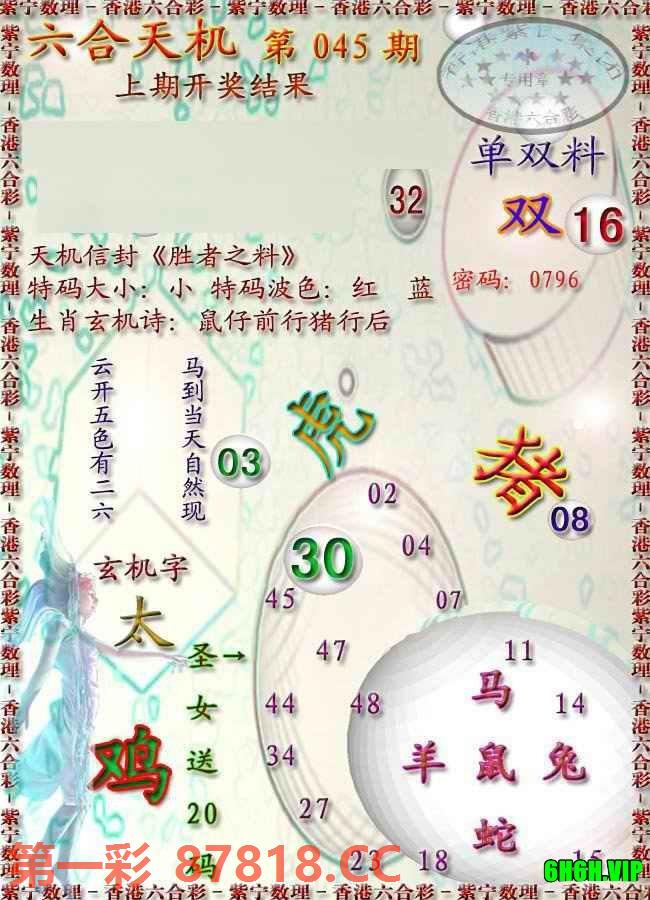 紫宁数理－香港六合彩－紫宁数理－香港六合彩－紫宁数理－香港六合彩－紫宁数理－香港六合彩
六合天机 第 045 期
上期开奖结果
专用章
香港六合彩
32
单双料
双 16
天机信封《胜者之料》
特码大小：小 特码波色：红 蓝
密码：0796
生肖玄机诗：鼠仔前行猪行后
云开五色有二六
马到当天自然现
03
虎
猪
08
02
30
04
45
07
玄机字
太
圣→
女
送
20
码
鸡
47
11
马
44
48
14
羊 鼠 兔
34
27
蛇
23
18
15
第一彩 87818.CC
6H6H.VIP
紫宁数理－香港六合彩－紫宁数理－香港六合彩－紫宁数理－香港六合彩－紫宁数理－香港六合彩